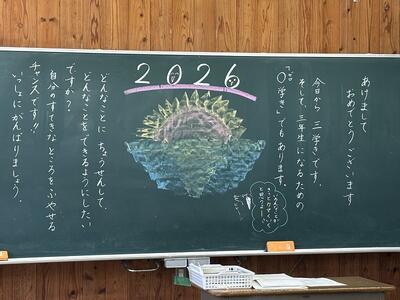 2026
あけまして
おめでとうございます
今日から 三学きです。
そして、三年生になるための
「0学き」でもあります。
どんなことに ちょうせんして、
どんなことをできるようにしたい
ですか？
自分のすてきなところをふやせる
チャンスです!!
いっしょにがんばりましょう。